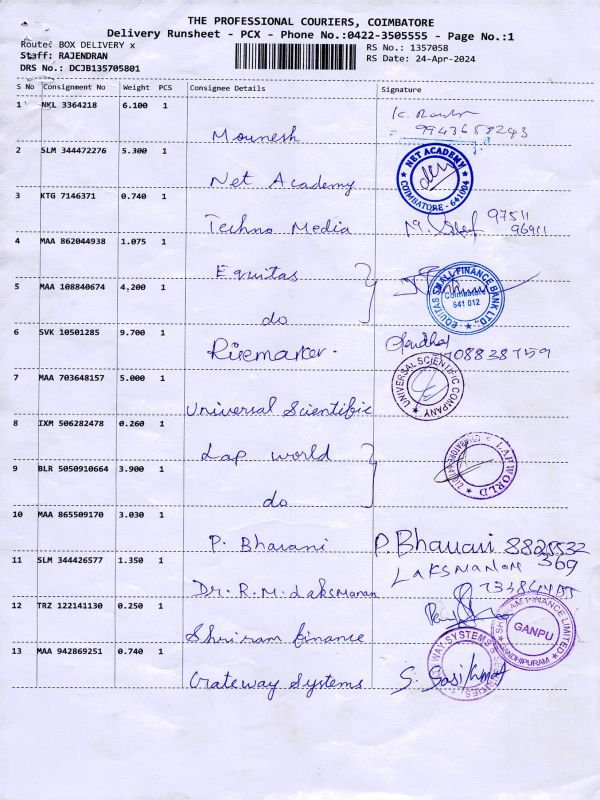 THE PROFESSIONAL COURIERS, COIMBATORE
Delivery Runsheet - PCX - Phone No.:0422-3505555 - Page No.:1
Route: BOX DELIVERY x
RS No.: 1357058
Staff: RAJENDRAN
RS Date: 24-Apr-2024
DRS No.: DCJB135705801
S No Consignment No Weight PCS Consignee Details Signature
1 NKL 3364218 6.100 1
Mounesh
2 SLM 344472276 5.300 1
Net Academy
NET ACADEMY
COIMBATORE - 641004
3 KTG 7146371 0.740 1
Techno Media
97511
96911
4 MAA 862044938 1.075 1
Equitas
5 MAA 108840674 4.200 1
do
EQUITAS SMALL FINANCE BANK LTD.,
Coimbatore
641 012
6 SVK 10501285 9.700 1
708838759
7 MAA 703648157 5.000 1
Universal Scientific
UNIVERSAL SCIENTIFIC COMPANY
8 IXM 506282478 0.260 1
Lap world
9 BLR 5050910664 3.900 1
do
LAPWORLD
10 MAA 865509170 3.030 1
P. Bharani
P. Bharani
11 SLM 344426577 1.350 1
Dr. R. M. Laksmanan
LAKSMANAN
369
12 TRZ 122141130 0.250 1
Shriram finance
SHRIRAM FINANCE LIMITED
GANPU
GANDHIPURAM
13 MAA 942869251 0.740 1
Gateway Systems
S. Sasikumar